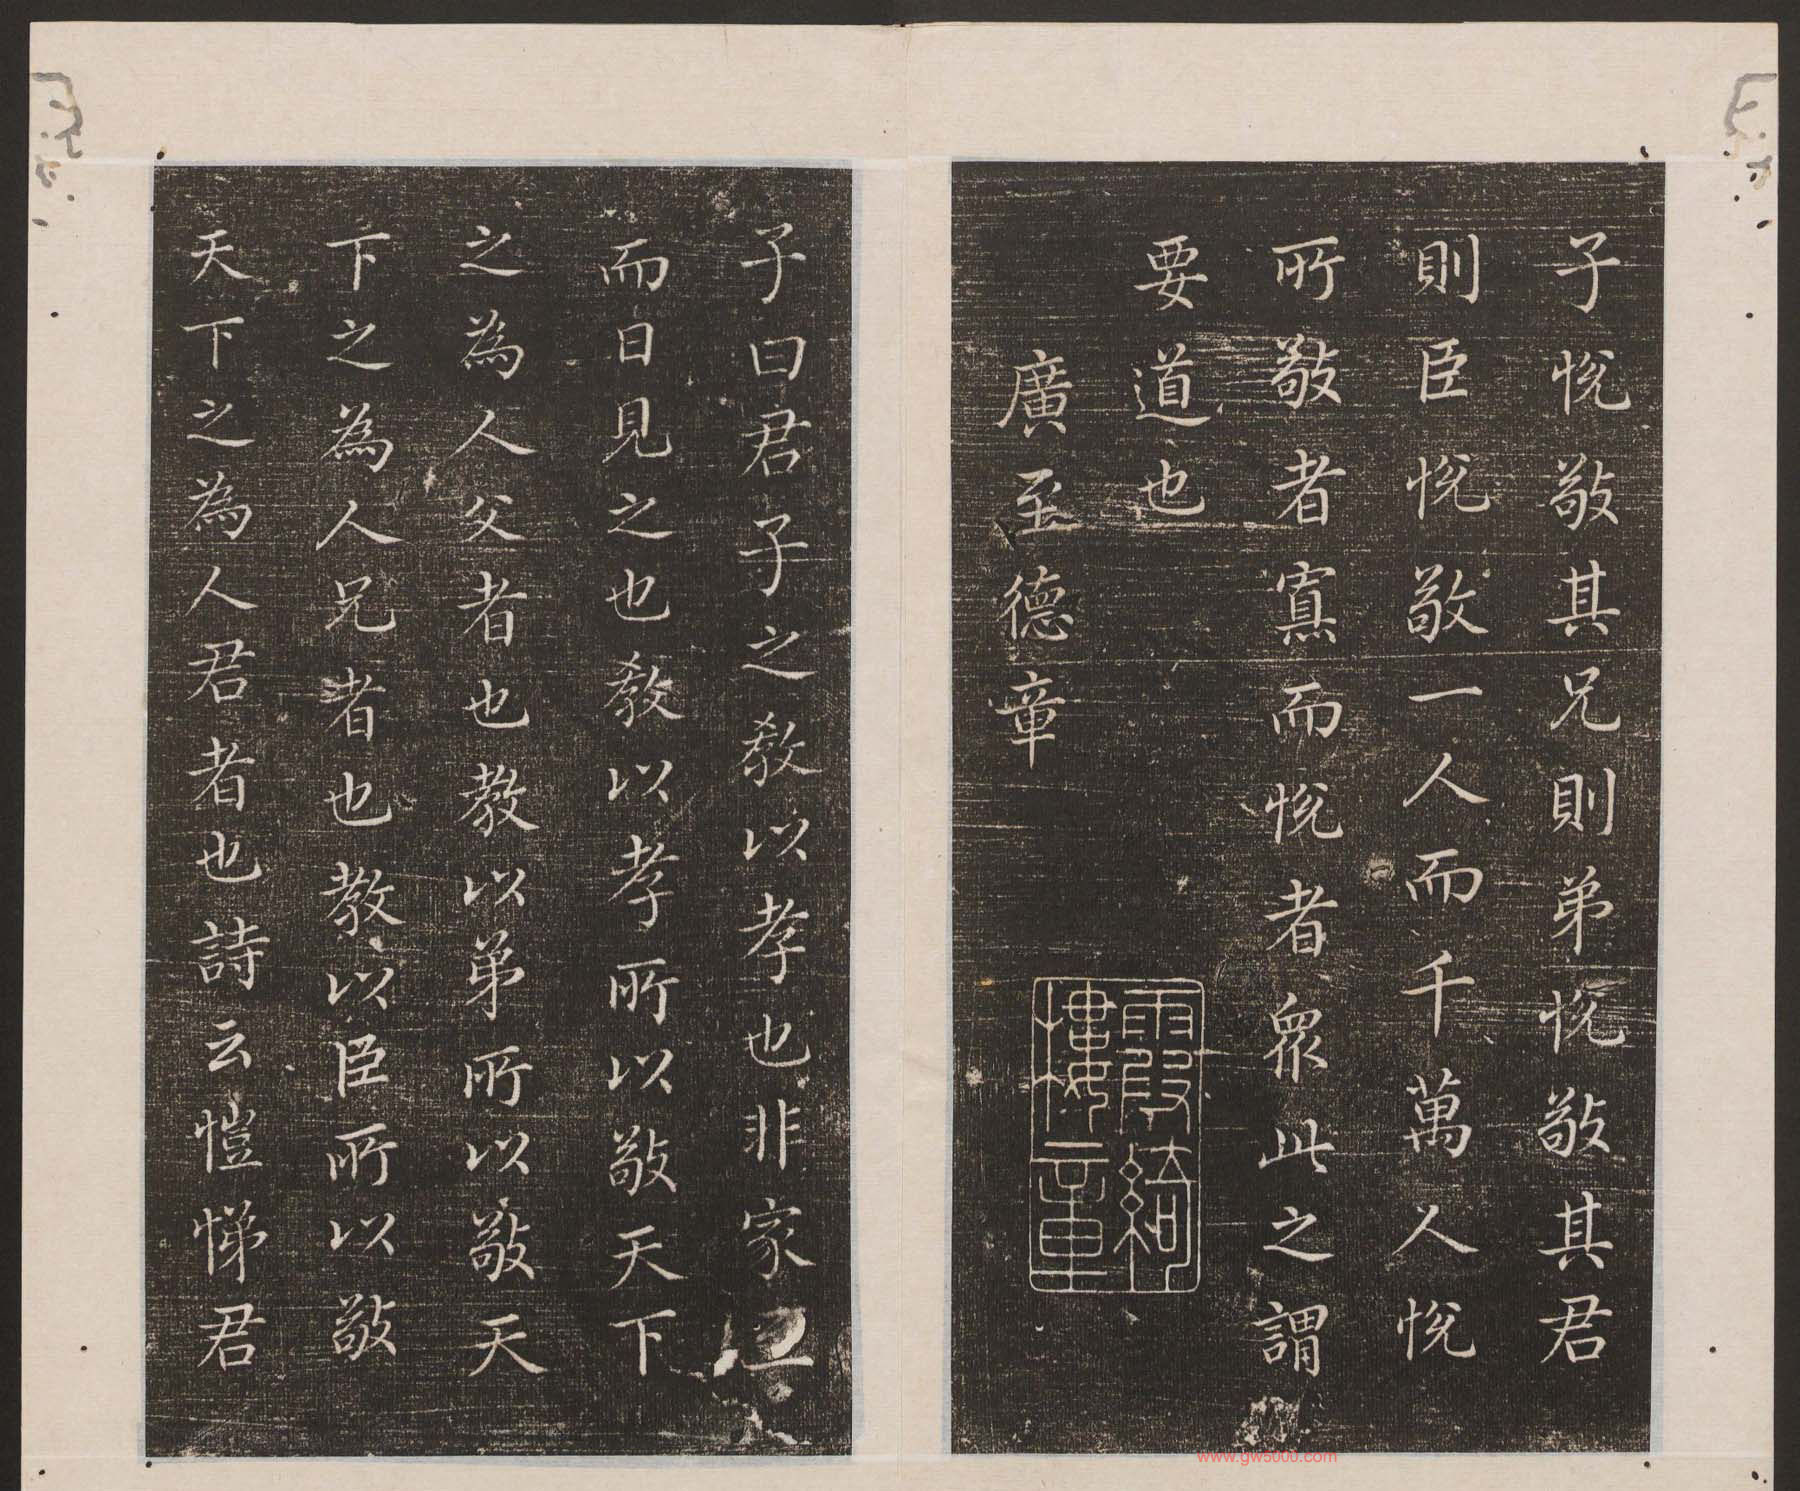 子悅敬其兄則弟悅敬其君
則臣悅敬一人而千萬人悅
所敬者寡而悅者衆此之謂
要道也
廣至德章
霞綺
樓章
子曰君子之教以孝也非家
而日見之也教以孝所以敬天下
之為人父者也教以弟所以敬天
下之為人兄者也教以臣所以敬
天下之為人君者也詩云愷悌君
www.gw5000.com